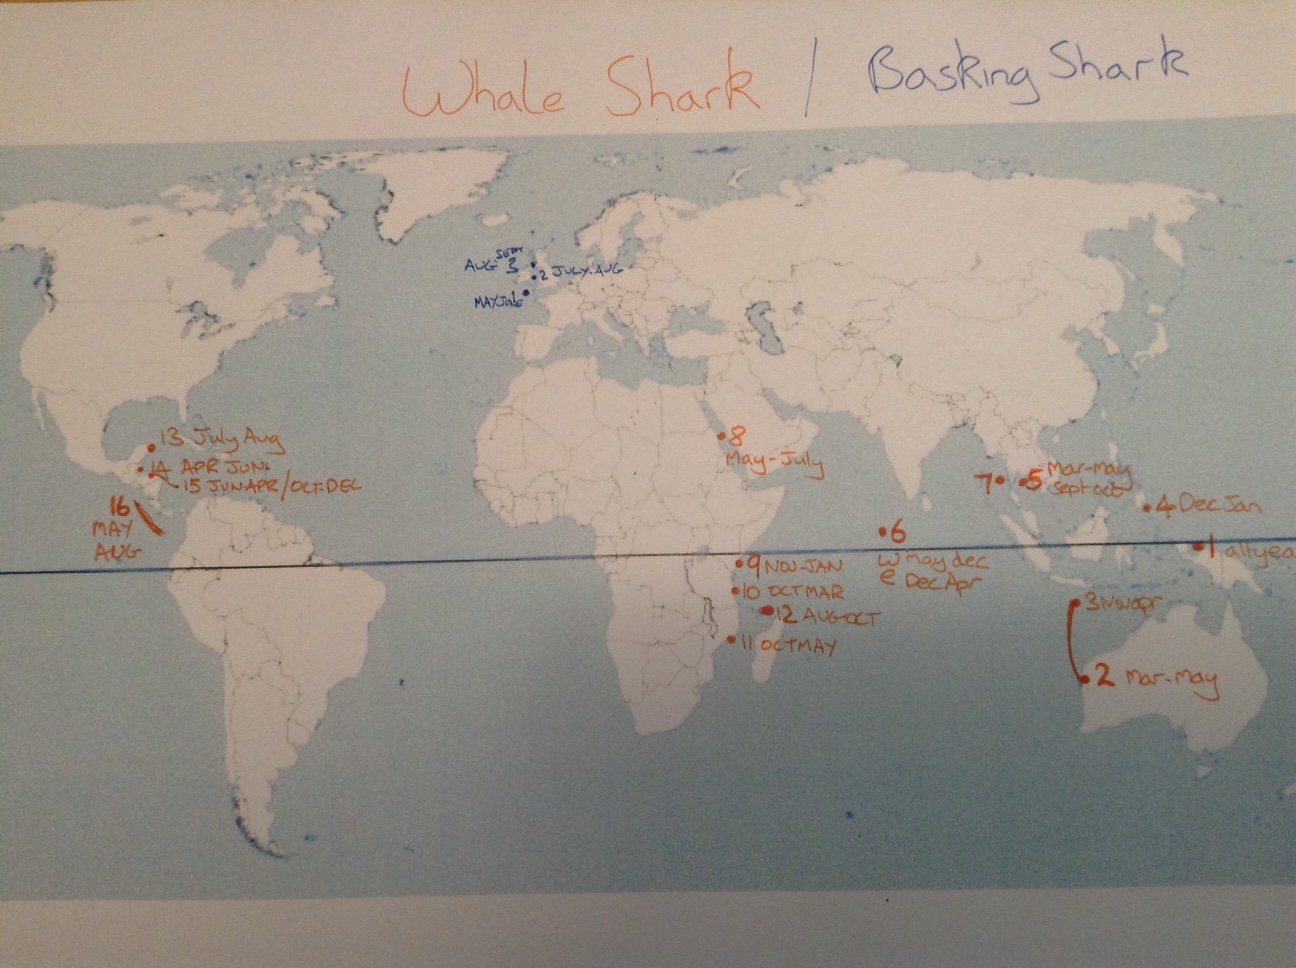 Whale Shark / Basking Shark
SEPT
AUG 3
2 JULY-AUG
MAY JUNE
13 July Aug
14 APR JUN
15 JUN APR/OCT-DEC
16
MAY
AUG
8
May-July
7
5 Mar-may
Sept oct
4 Dec Jan
6
W may dec
e Dec Apr
1 allyea
9 NOV-JAN
10 OCT MAR
12 AUG-OCT
11 OCT MAY
3 Nov apr
2 Mar-may